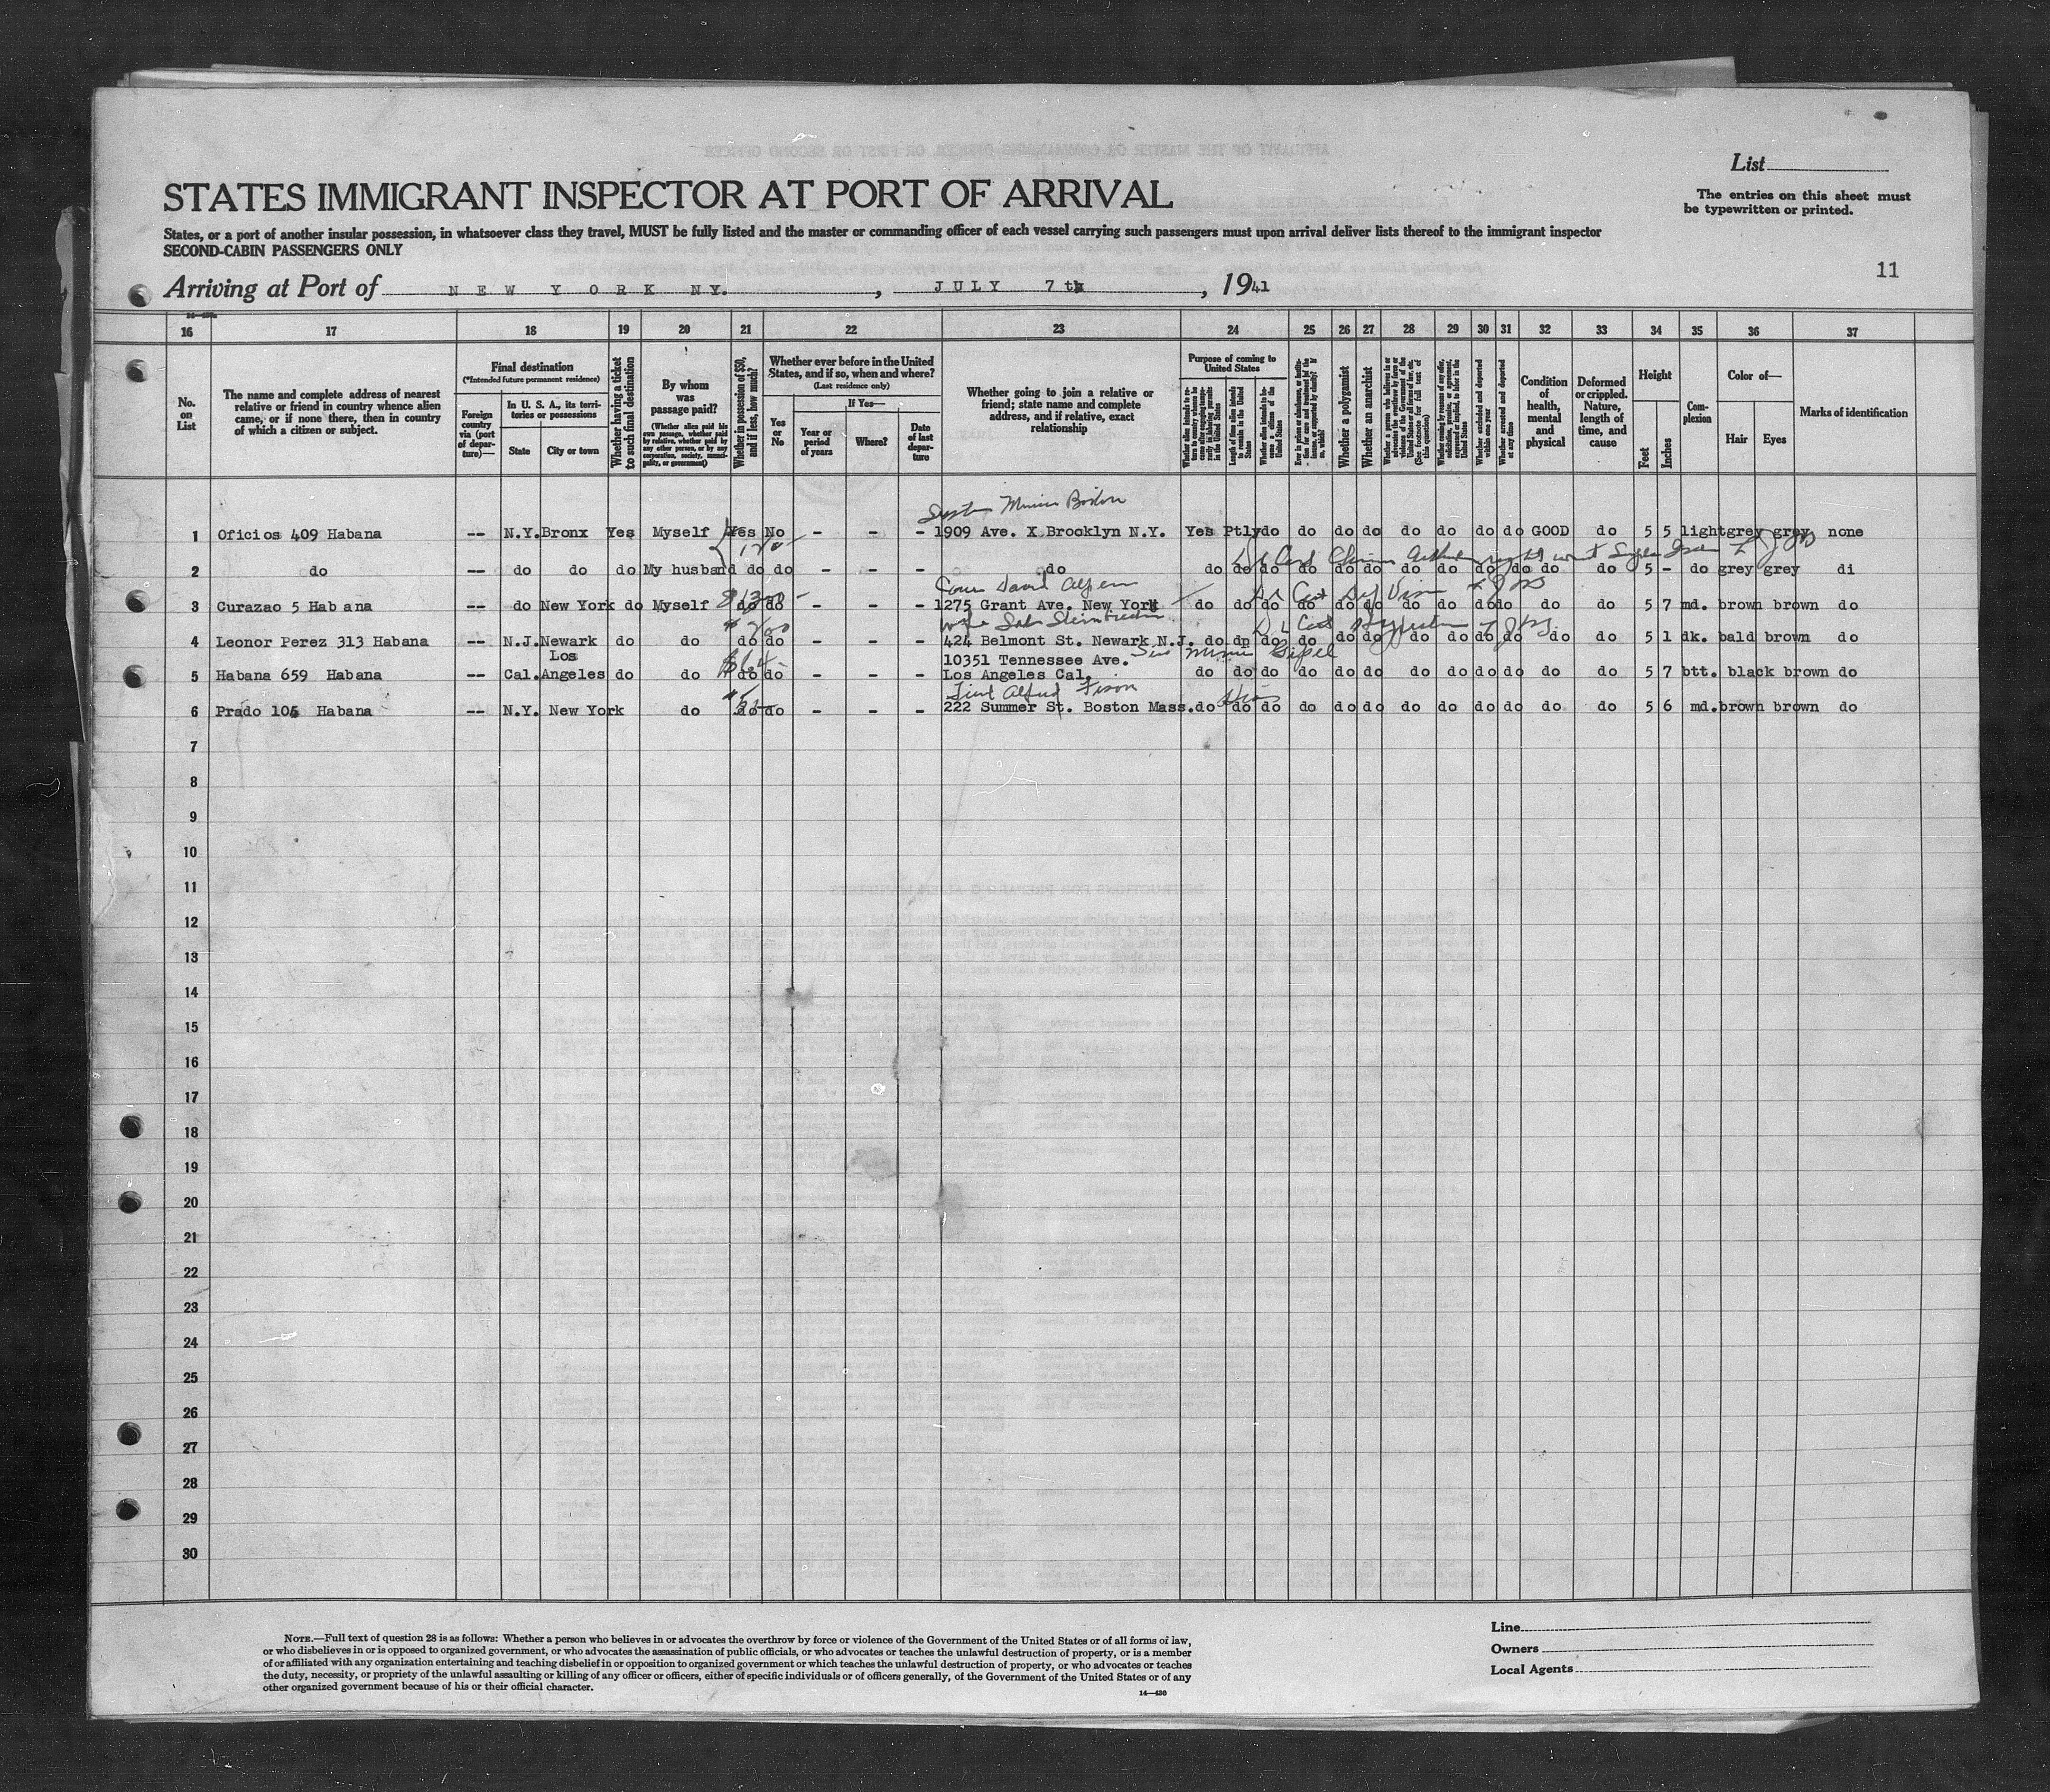 List
STATES IMMIGRANT INSPECTOR AT PORT OF ARRIVAL
The entries on this sheet must
be typewritten or printed.
States, or a port of another insular possession, in whatsoever class they travel, MUST be fully listed and the master or commanding officer of each vessel carrying such passengers must upon arrival deliver lists thereof to the immigrant inspector
SECOND-CABIN PASSENGERS ONLY
11
Arriving at Port of NEW YORK NY. , JULY 7th , 1941
16 17 18 19 20 21 22 23 24 25 26 27 28 29 30 31 32 33 34 35 36 37
No. on List
The name and complete address of nearest
relative or friend in country whence alien
came, or if none there, then in country
of which a citizen or subject.
Final destination
(*Intended future permanent residence)
Foreign country via (port of departure)—
In U. S. A., its territories or possessions
State
City or town
Whether having a ticket to such final destination
By whom was passage paid?
(Whether alien paid his own passage, whether paid by relative, whether paid by any other person, or by any corporation, society, municipality, or government)
Whether in possession of $50, and if less, how much?
Whether ever before in the United States, and if so, when and where?
(Last residence only)
Yes or No
If Yes—
Year or period of years
Where?
Date of last departure
Whether going to join a relative or
friend; state name and complete
address, and if relative, exact
relationship
Purpose of coming to United States
Length of time alien intends to remain in the United States
Whether a polygamist
Whether an anarchist
(See footnote for full text of this question)
Whether arrested and deported within one year
Whether arrested and deported at any time
Condition of health, mental and physical
Deformed or crippled. Nature, length of time, and cause
Height
Feet
Inches
Complexion
Color of—
Hair
Eyes
Marks of identification
1 Oficios 409 Habana -- N.Y. Bronx Yes Myself Yes No - - - 1909 Ave. X Brooklyn N.Y. Yes Ptly do do do do do do do do GOOD do 5 5 light grey grey none
2 do -- do do do My husband do do - - - do do do do do do do do do do do do do 5 - do grey grey di
3 Curazao 5 Habana -- do New York do Myself do do - - - 1275 Grant Ave. New York do do do do do do do do do do do do 5 7 md. brown brown do
4 Leonor Perez 313 Habana -- N.J. Newark do do do do - - - 424 Belmont St. Newark N.J. do do do do do do do do do do do do 5 1 dk. bald brown do
Los 10351 Tennessee Ave.
5 Habana 659 Habana -- Cal. Angeles do do do do - - - Los Angeles Cal. do do do do do do do do do do do do 5 7 btt. black brown do
6 Prado 105 Habana -- N.Y. New York do do do - - - 222 Summer St. Boston Mass. do do do do do do do do do do do do 5 6 md. brown brown do
7
8
9
10
11
12
13
14
15
16
17
18
19
20
21
22
23
24
25
26
27
28
29
30
NOTE.—Full text of question 28 is as follows: Whether a person who believes in or advocates the overthrow by force or violence of the Government of the United States or of all forms of law,
or who disbelieves in or is opposed to organized government, or who advocates the assassination of public officials, or who advocates or teaches the unlawful destruction of property, or is a member
of or affiliated with any organization entertaining and teaching disbelief in or opposition to organized government or which teaches the unlawful destruction of property, or who advocates or teaches
the duty, necessity, or propriety of the unlawful assaulting or killing of any officer or officers, either of specific individuals or of officers generally, of the Government of the United States or of any
other organized government because of his or their official character.
14—430
Line
Owners
Local Agents